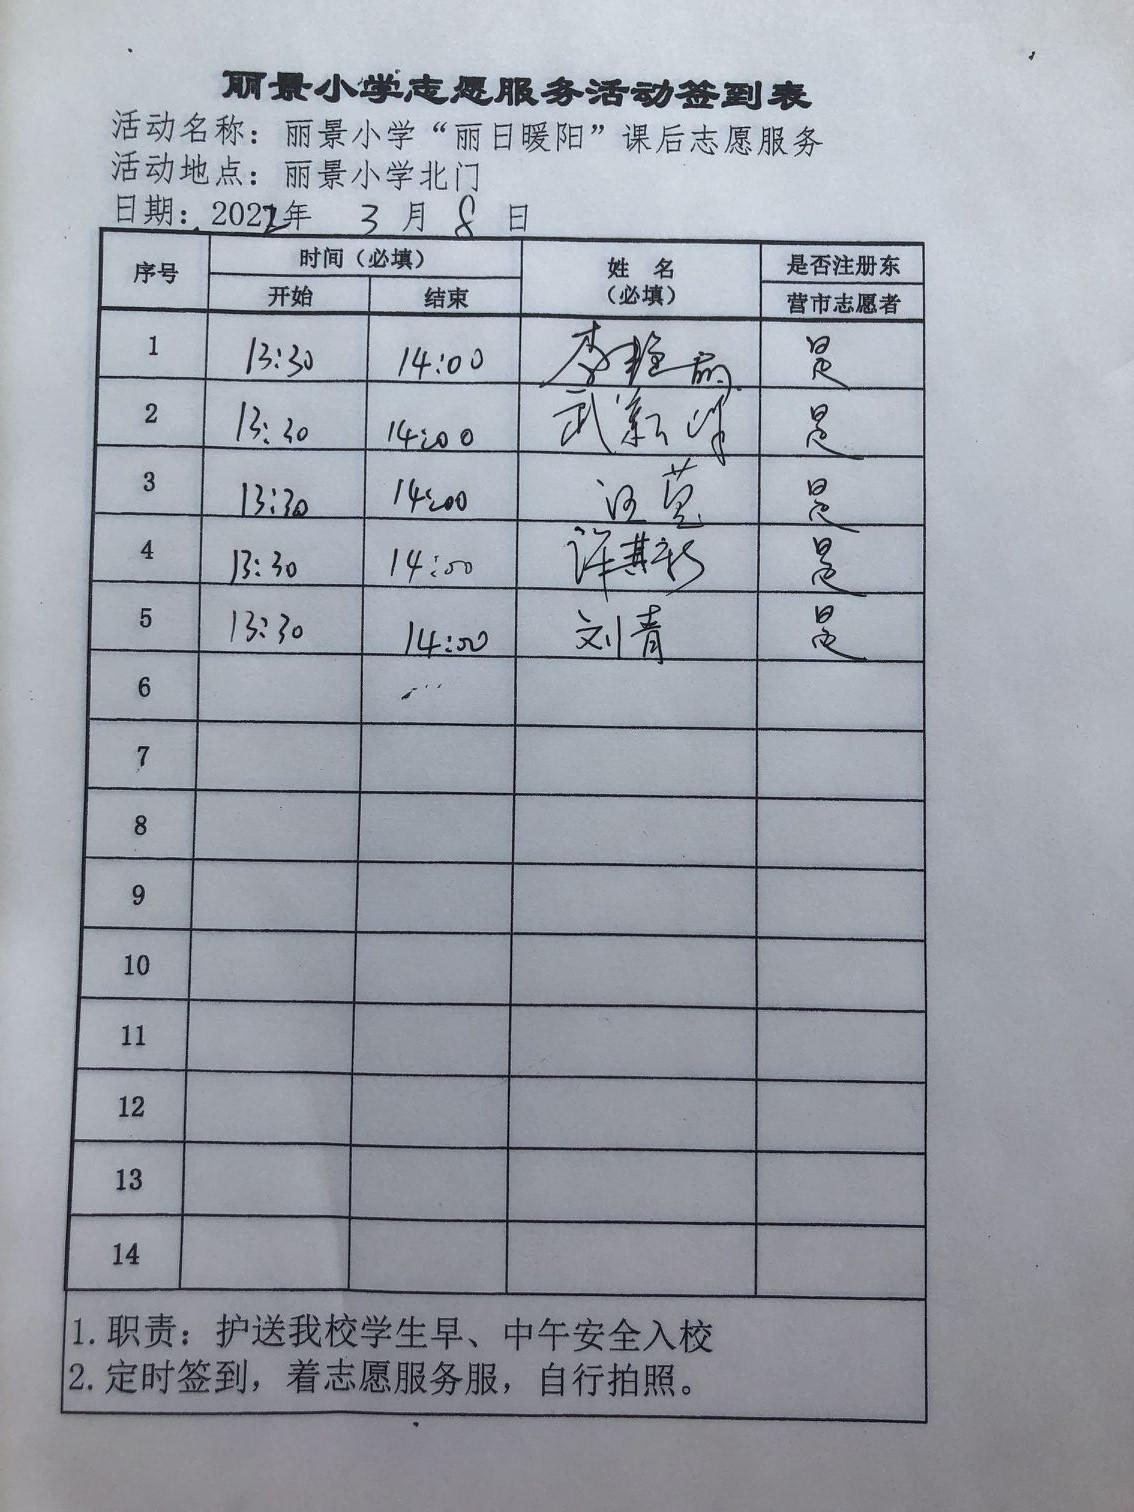 丽景小学志愿服务活动签到表
活动名称：丽景小学“丽日暖阳”课后志愿服务
活动地点：丽景小学北门
日期：2022年 3 月 8 日
序号 时间（必填） 姓 名 是否注册东
开始 结束 （必填） 营市志愿者
1 13:30 14:00 李 是
2 13:30 14:00 武新 是
3 13:30 14:00 汪 是
4 13:30 14:00 许其新 是
5 13:30 14:00 刘青 是
6
7
8
9
10
11
12
13
14
1. 职责：护送我校学生早、中午安全入校
2. 定时签到，着志愿服务服，自行拍照。